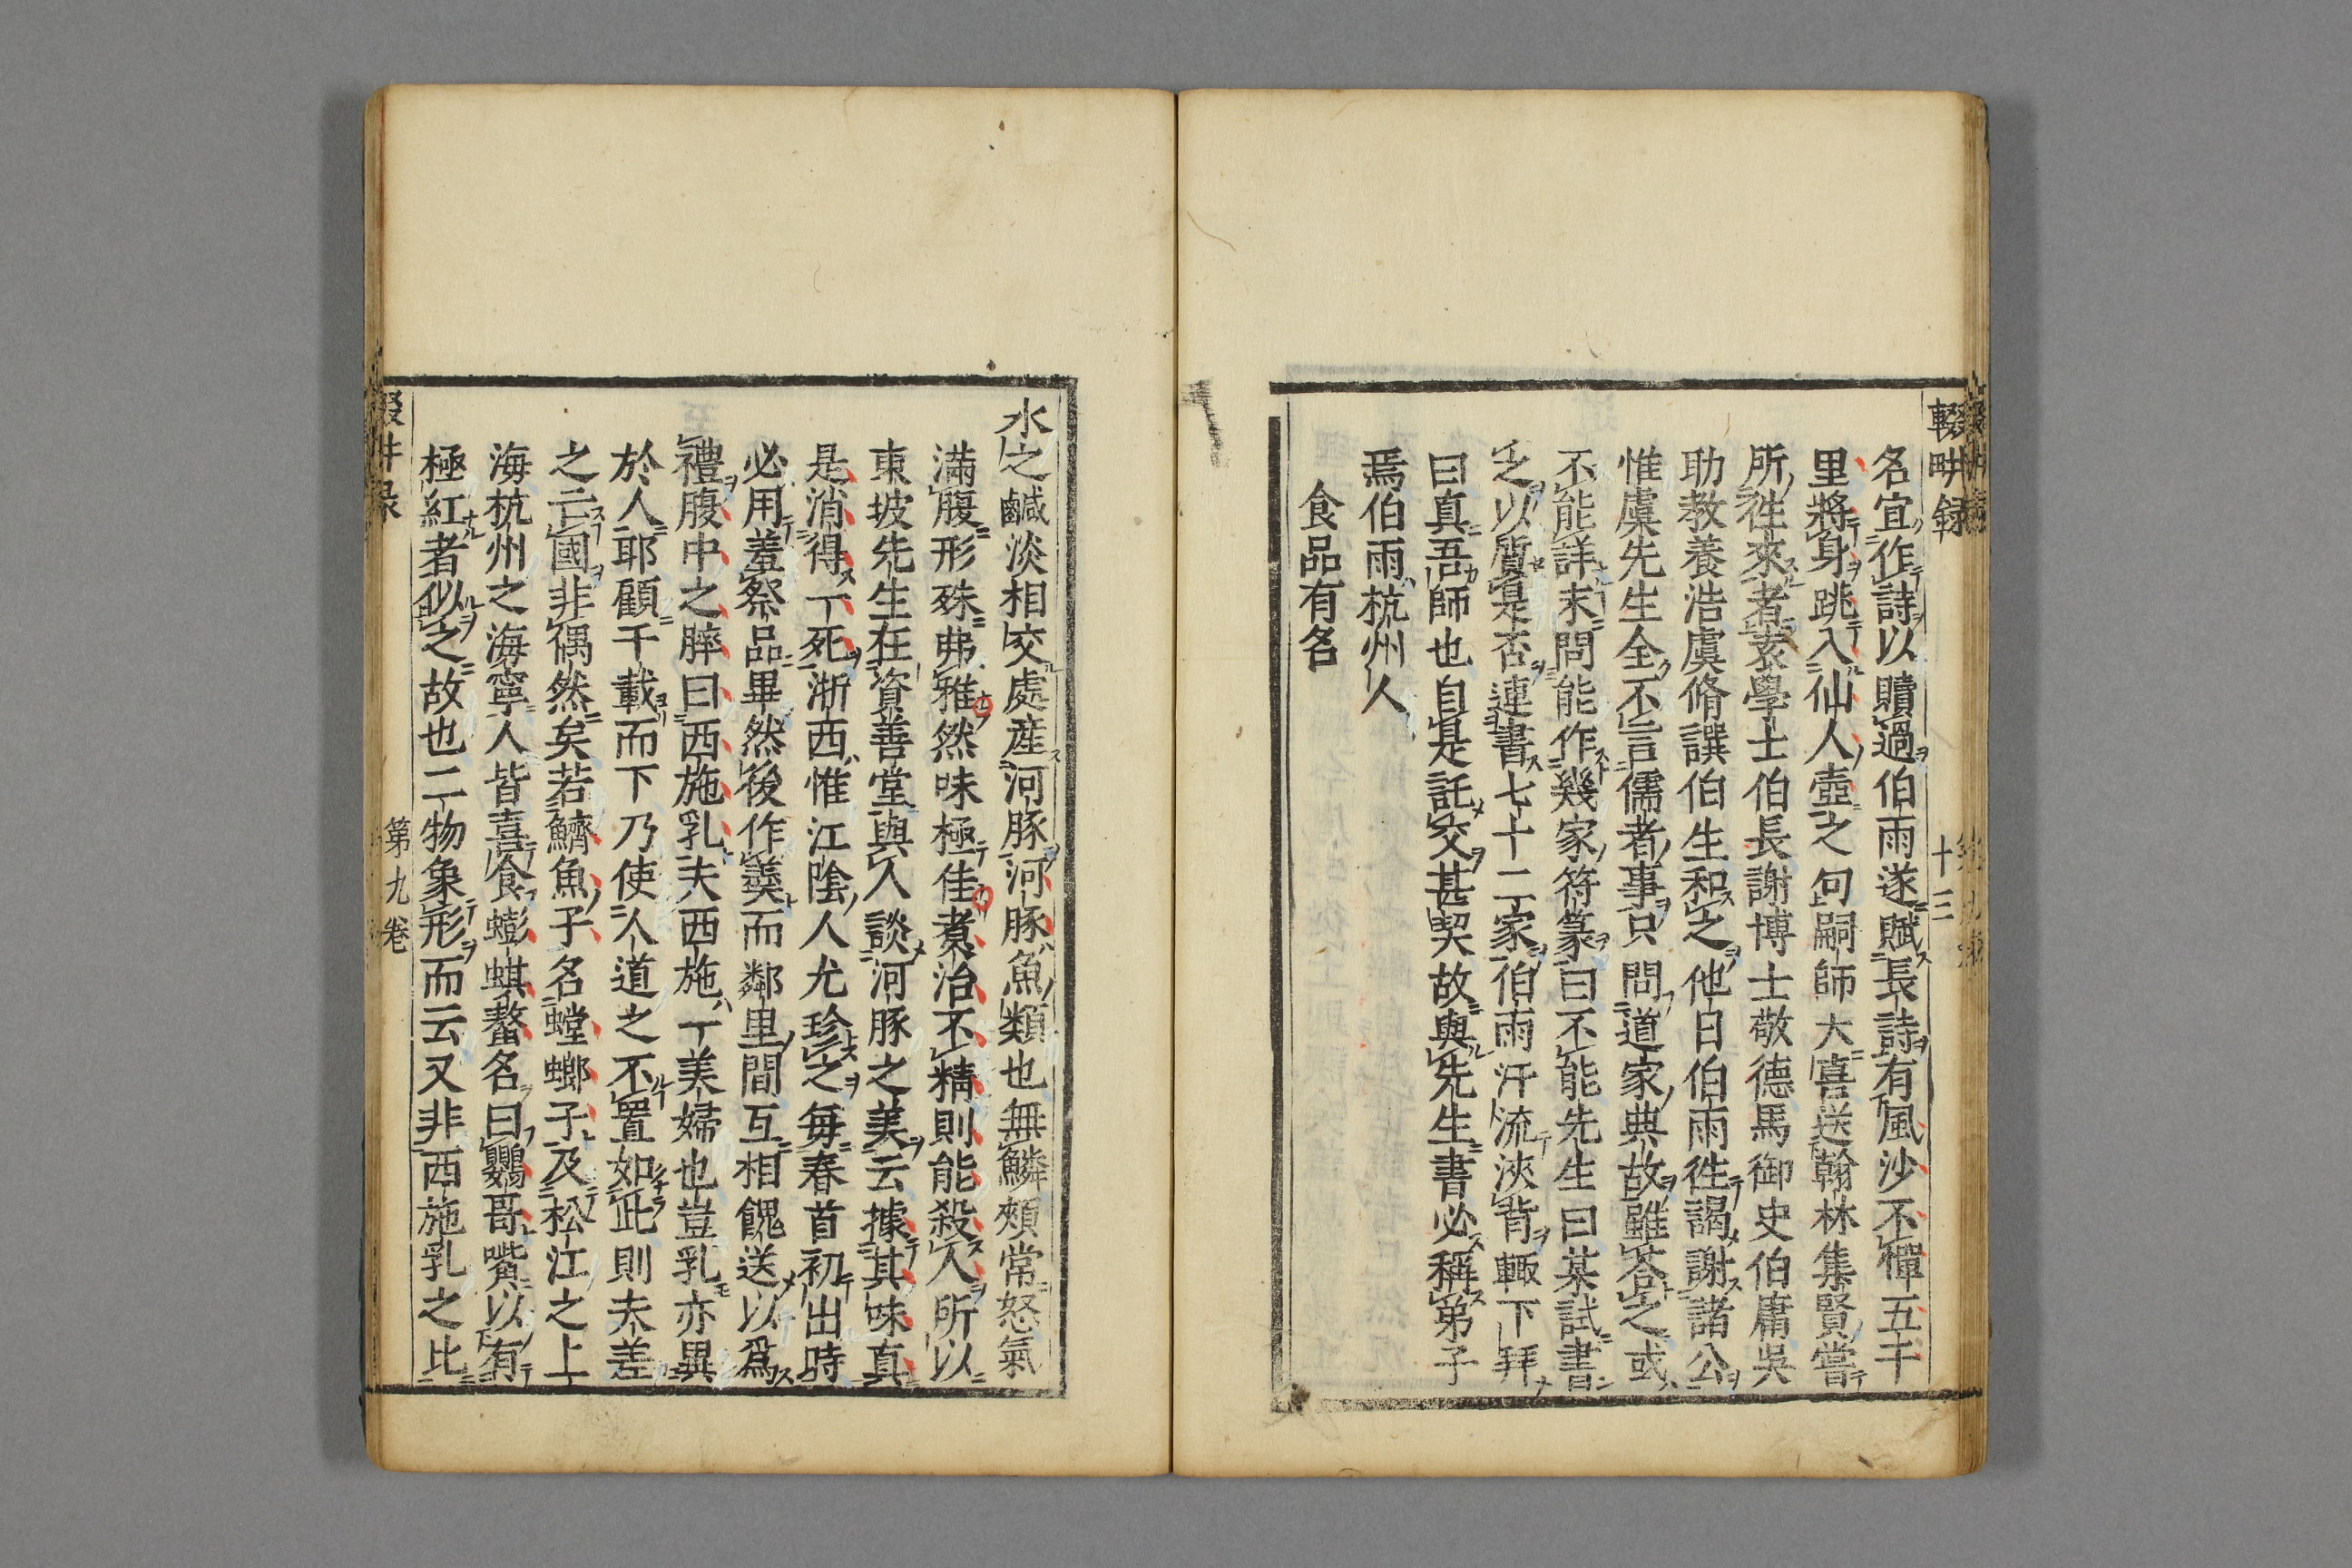 輟畊録
十三
名宜作詩以贖過伯雨遂賦長詩有風沙不憚五千
里將身跳入仙人壺之句嗣師大喜送翰林集賢嘗
所徃來者袁學士伯長謝博士敬德馬御史伯庸吳
助教養浩虞脩譔伯生和之他日伯雨徃謁謝諸公
惟虞先生全不言儒者事只問道家典故雖荅之或
不能詳末問能作幾家符篆曰不能先生曰某試書
之以質是否連書七十二家伯雨汗流浹背輙下拜
曰真吾師也自是託交甚契故與先生書必稱弟子
焉伯雨杭州人
食品有名
水之鹹淡相交處產河豚河豚魚類也無鱗頰常怒氣
滿腹形殊弗雅然味極佳煮治不精則能殺人所以
東坡先生在資善堂與人談河豚之美云據其味真
是消得一死浙西惟江陰人尤珍之每春首初出時
必用羞祭品畢然後作羹而鄰里間互相餽送以爲
禮腹中之膟曰西施乳夫西施一美婦也豈乳亦異
於人耶顧千載而下乃使人道之不置如此則夫差
之亡國非偶然矣若鱭魚子名螳螂子及松江之上
海杭州之海寧人皆喜食蟛蜞螯名曰鸚哥嘴以有
極紅者似之故也二物象形而云又非西施乳之比
第九卷